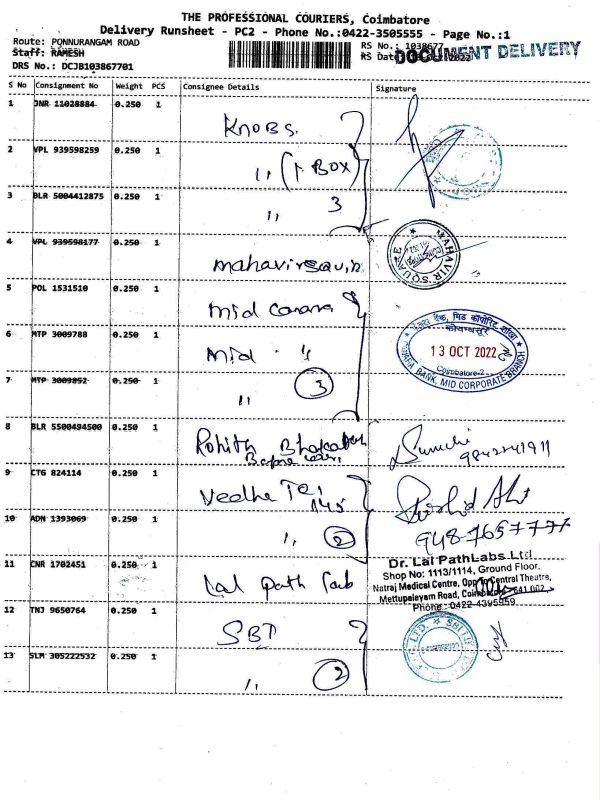 THE PROFESSIONAL COURIERS, Coimbatore
Delivery Runsheet - PC2 - Phone No.:0422-3505555 - Page No.:1
Route: PONNURANGAM ROAD
Staff: RAMESH
DRS No.: DCJB103867701
RS No.: 1038677
RS Dat
DOCUMENT DELIVERY
S No Consignment No Weight PCS Consignee Details Signature
1 JNR 11028884 0.250 1 Knobs.
2 VPL 939598259 0.250 1 ,, (1 Box)
3 BLR 5004412875 0.250 1 ,, 3
4 VPL 939598177 0.250 1 mahavirsquir
MAHAVIR SQUARE
5 POL 1531510 0.250 1 mid Canara
6 MTP 3009788 0.250 1 mid ,,
7 MTP 3009852 0.250 1 ,, 3
13 OCT 2022
Coimbatore-2
BANK, MID CORPORATE BRANCH
8 BLR 5500494500 0.250 1 Rohith
9 CTG 824114 0.250 1 Veedha
10 ADN 1393069 0.250 1 ,, 2
11 CNR 1702451 0.250 1 Lal path Lab
Dr. Lal PathLabs Ltd.
Shop No: 1113/1114, Ground Floor.
Natraj Medical Centre, Opp to Central Theatre,
Mettupalayam Road, Coimbatore - 641 002.
Phone : 0422-4395959
12 TNJ 9650764 0.250 1 SBI
13 SLM 305222532 0.250 1 ,, 2